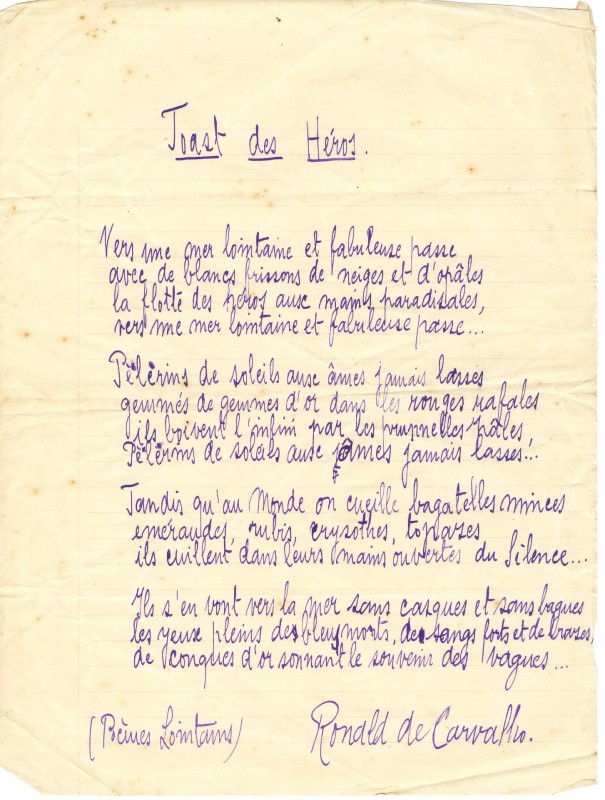 Toast des Héros.
Vers une mer lointaine et fabuleuse passe
avec de blancs frissons de neiges et d'opâles
la flotte des heros aux mains paradisales,
vers une mer lointaine et fabuleuse passe...
Pèlèrins de soleils aux âmes jamais lasses
gemmés de gemmes d'or dans les rouges rafales
ils boivent l'infini par les prunelles pâles,
Pèlèrins de soleils aux âmes jamais lasses...
Tandis qu'au Monde on cueille bagatelles minces
eméraudes, rubis, crysothes, topazes
ils cuillent dans leurs mains ouvertes du Silence...
Ils s'en vont vers la mer sans casques et sans bagues
les yeux pleins de bleus morts, de sangs forts et de brazes,
de conques d'or sonnant le souvenir des vagues...
(Poèmes Lointains) Ronald de Carvalho.